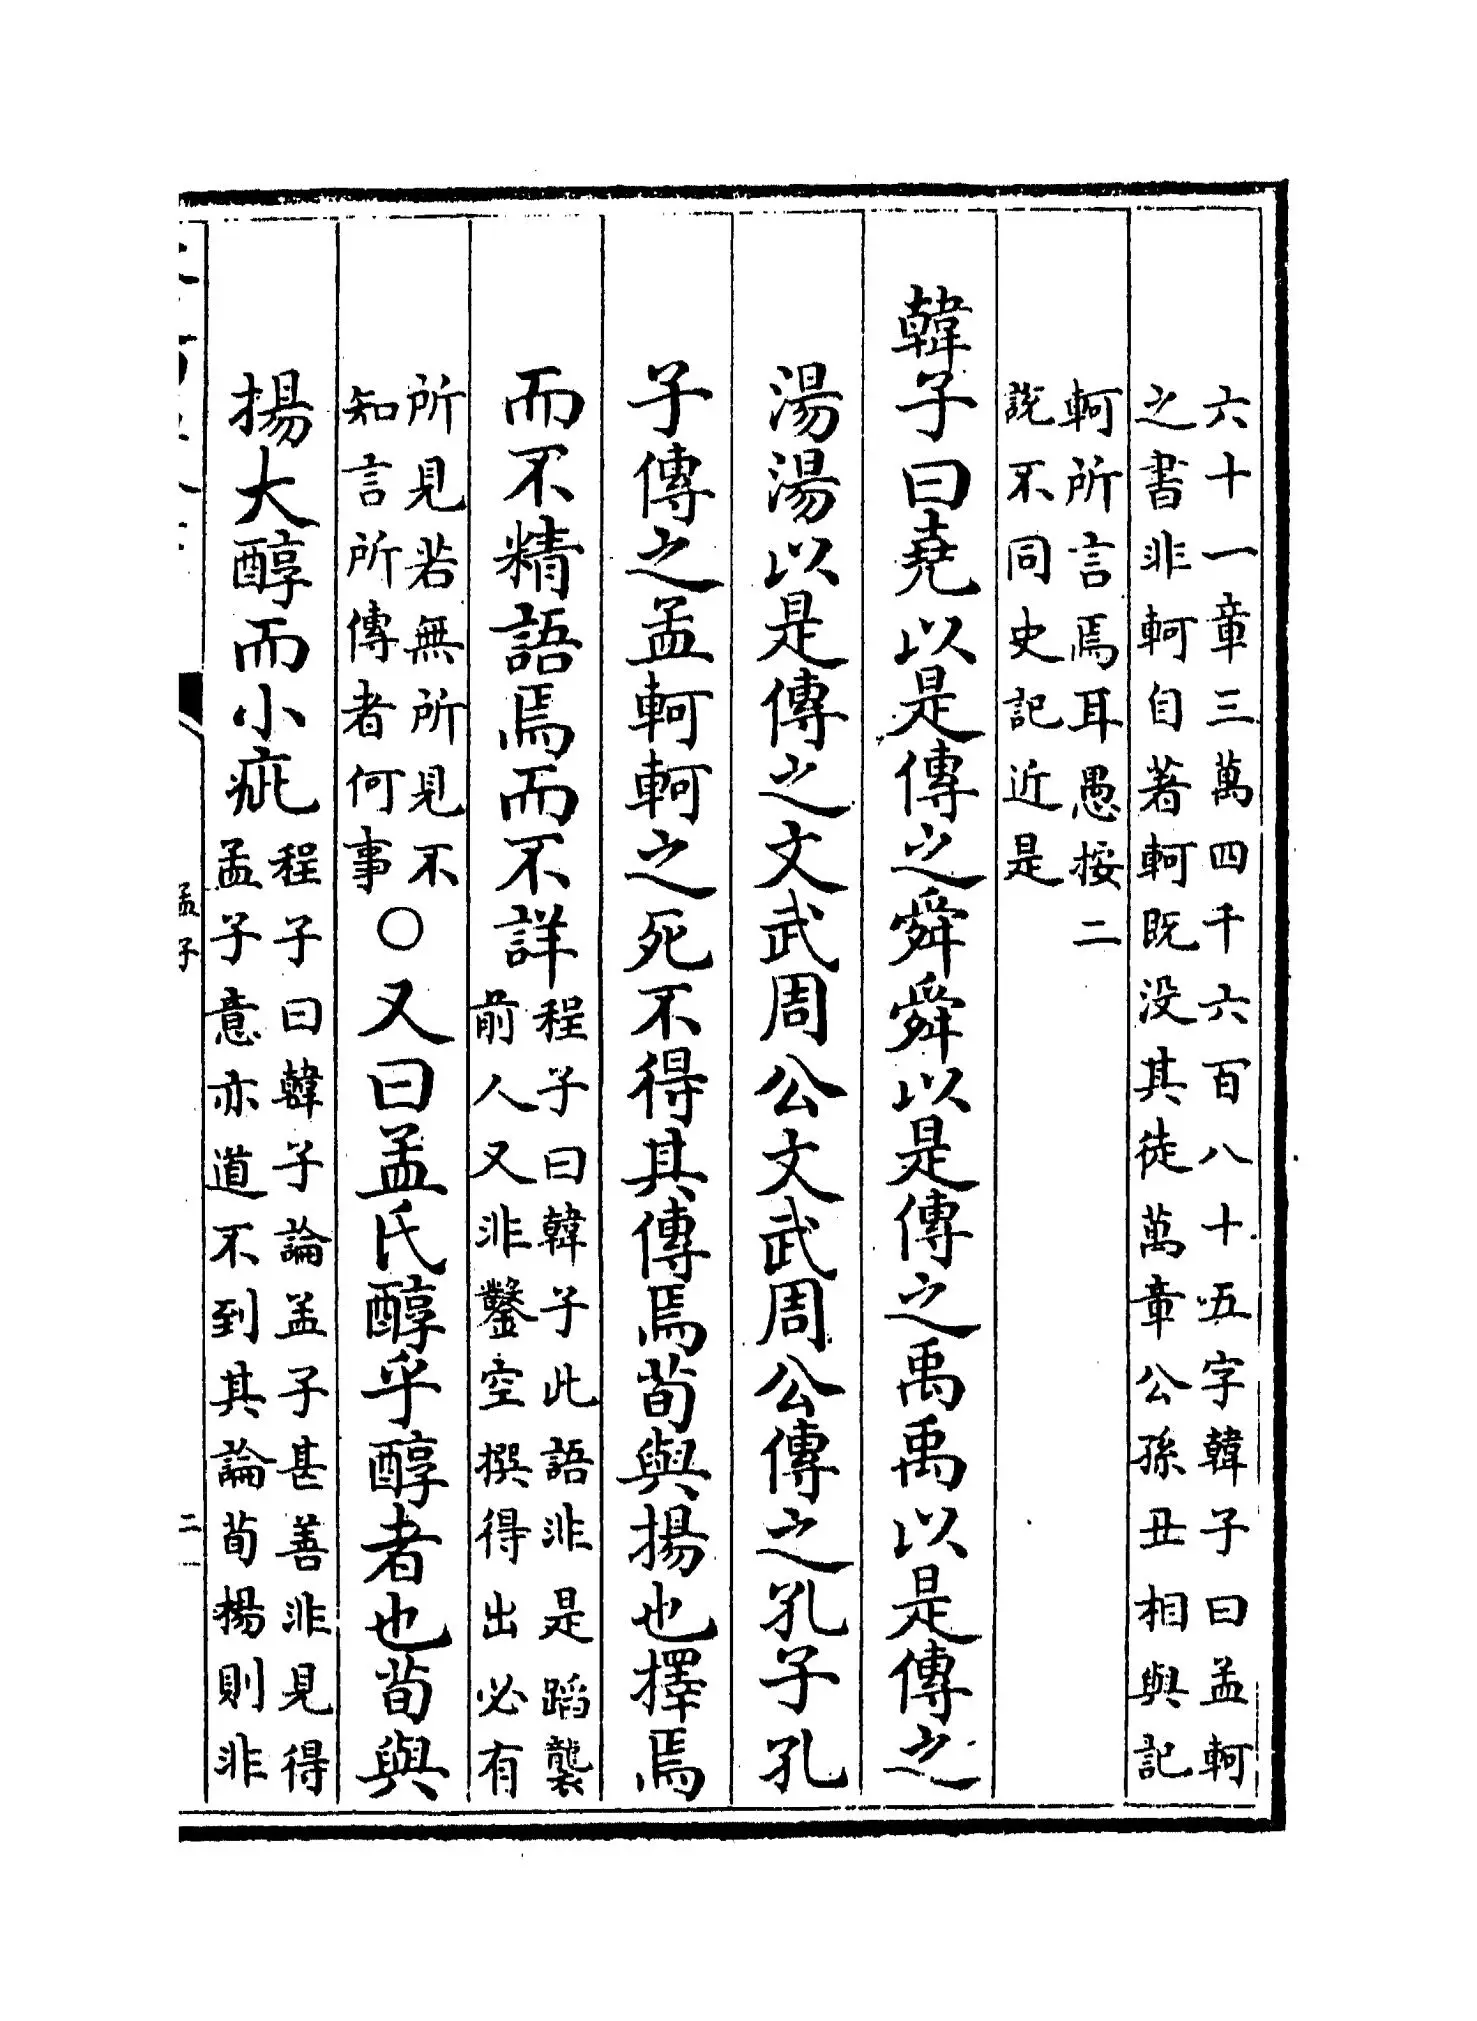 六十一章三萬四千六百八十五字韓子曰孟軻
之書非軻自著軻既没其徒萬章公孫丑相與記
軻所言焉耳愚按二
説不同史記近是
韓子曰堯以是傳之舜舜以是傳之禹禹以是傳之
湯湯以是傳之文武周公文武周公傳之孔子孔
子傳之孟軻軻之死不得其傳焉荀與揚也擇焉
而不精語焉而不詳
程子曰韓子此語非是蹈襲
前人又非鑿空撰得出必有
所見若無所見不
知言所傳者何事
○又曰孟氏醇乎醇者也荀與
揚大醇而小疵
程子曰韓子論孟子甚善非見得
孟子意亦道不到其論荀揚則非
孟子
二